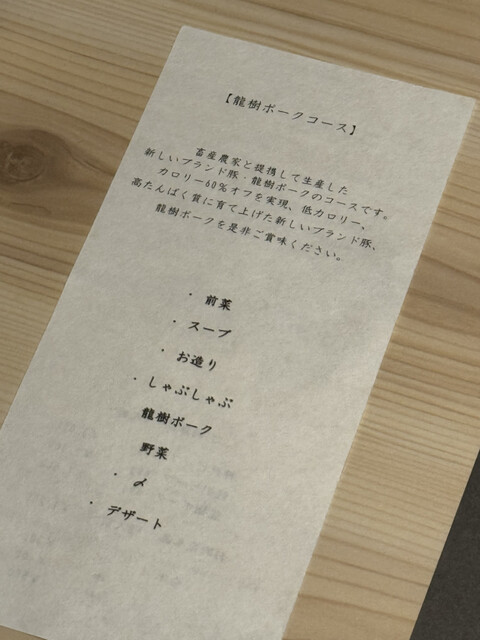 【龍樹ポークコース】
畜産農家と提携して生産した
新しいブランド豚・龍樹ポークのコースです。
カロリー60％オフを実現、低カロリー、
高たんぱく質に育て上げた新しいブランド豚、
龍樹ポークを是非ご賞味ください。
・前菜
・スープ
・お造り
・しゃぶしゃぶ
龍樹ポーク
野菜
・〆
・デザート